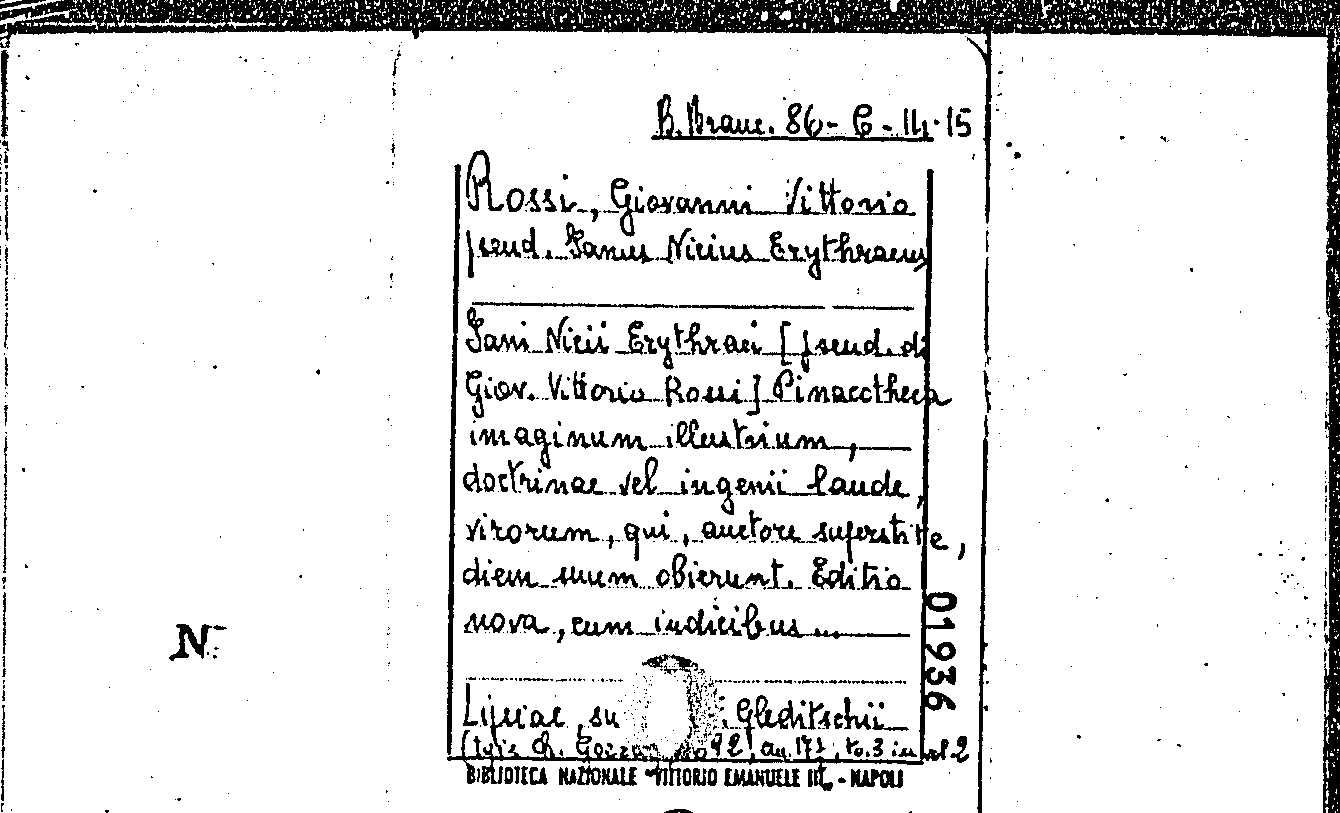 B. Branc. 86 - C - 14-15
Rossi, Giovanni Vittorio
pseud. Janus Nicius Erythraeus
Jani Nicii Erythraei [pseud. di
Giov. Vittorio Rossi] Pinacotheca
imaginum illustrium,
doctrinae vel ingenii laude,
virorum, qui, auctore superstite,
diem suum obierunt. Editio
nova, cum indicibus ...
N
01936
Lipsiae, su Gleditschii
to. 3 in vol 2
BIBLIOTECA NAZIONALE VITTORIO EMANUELE III - NAPOLI